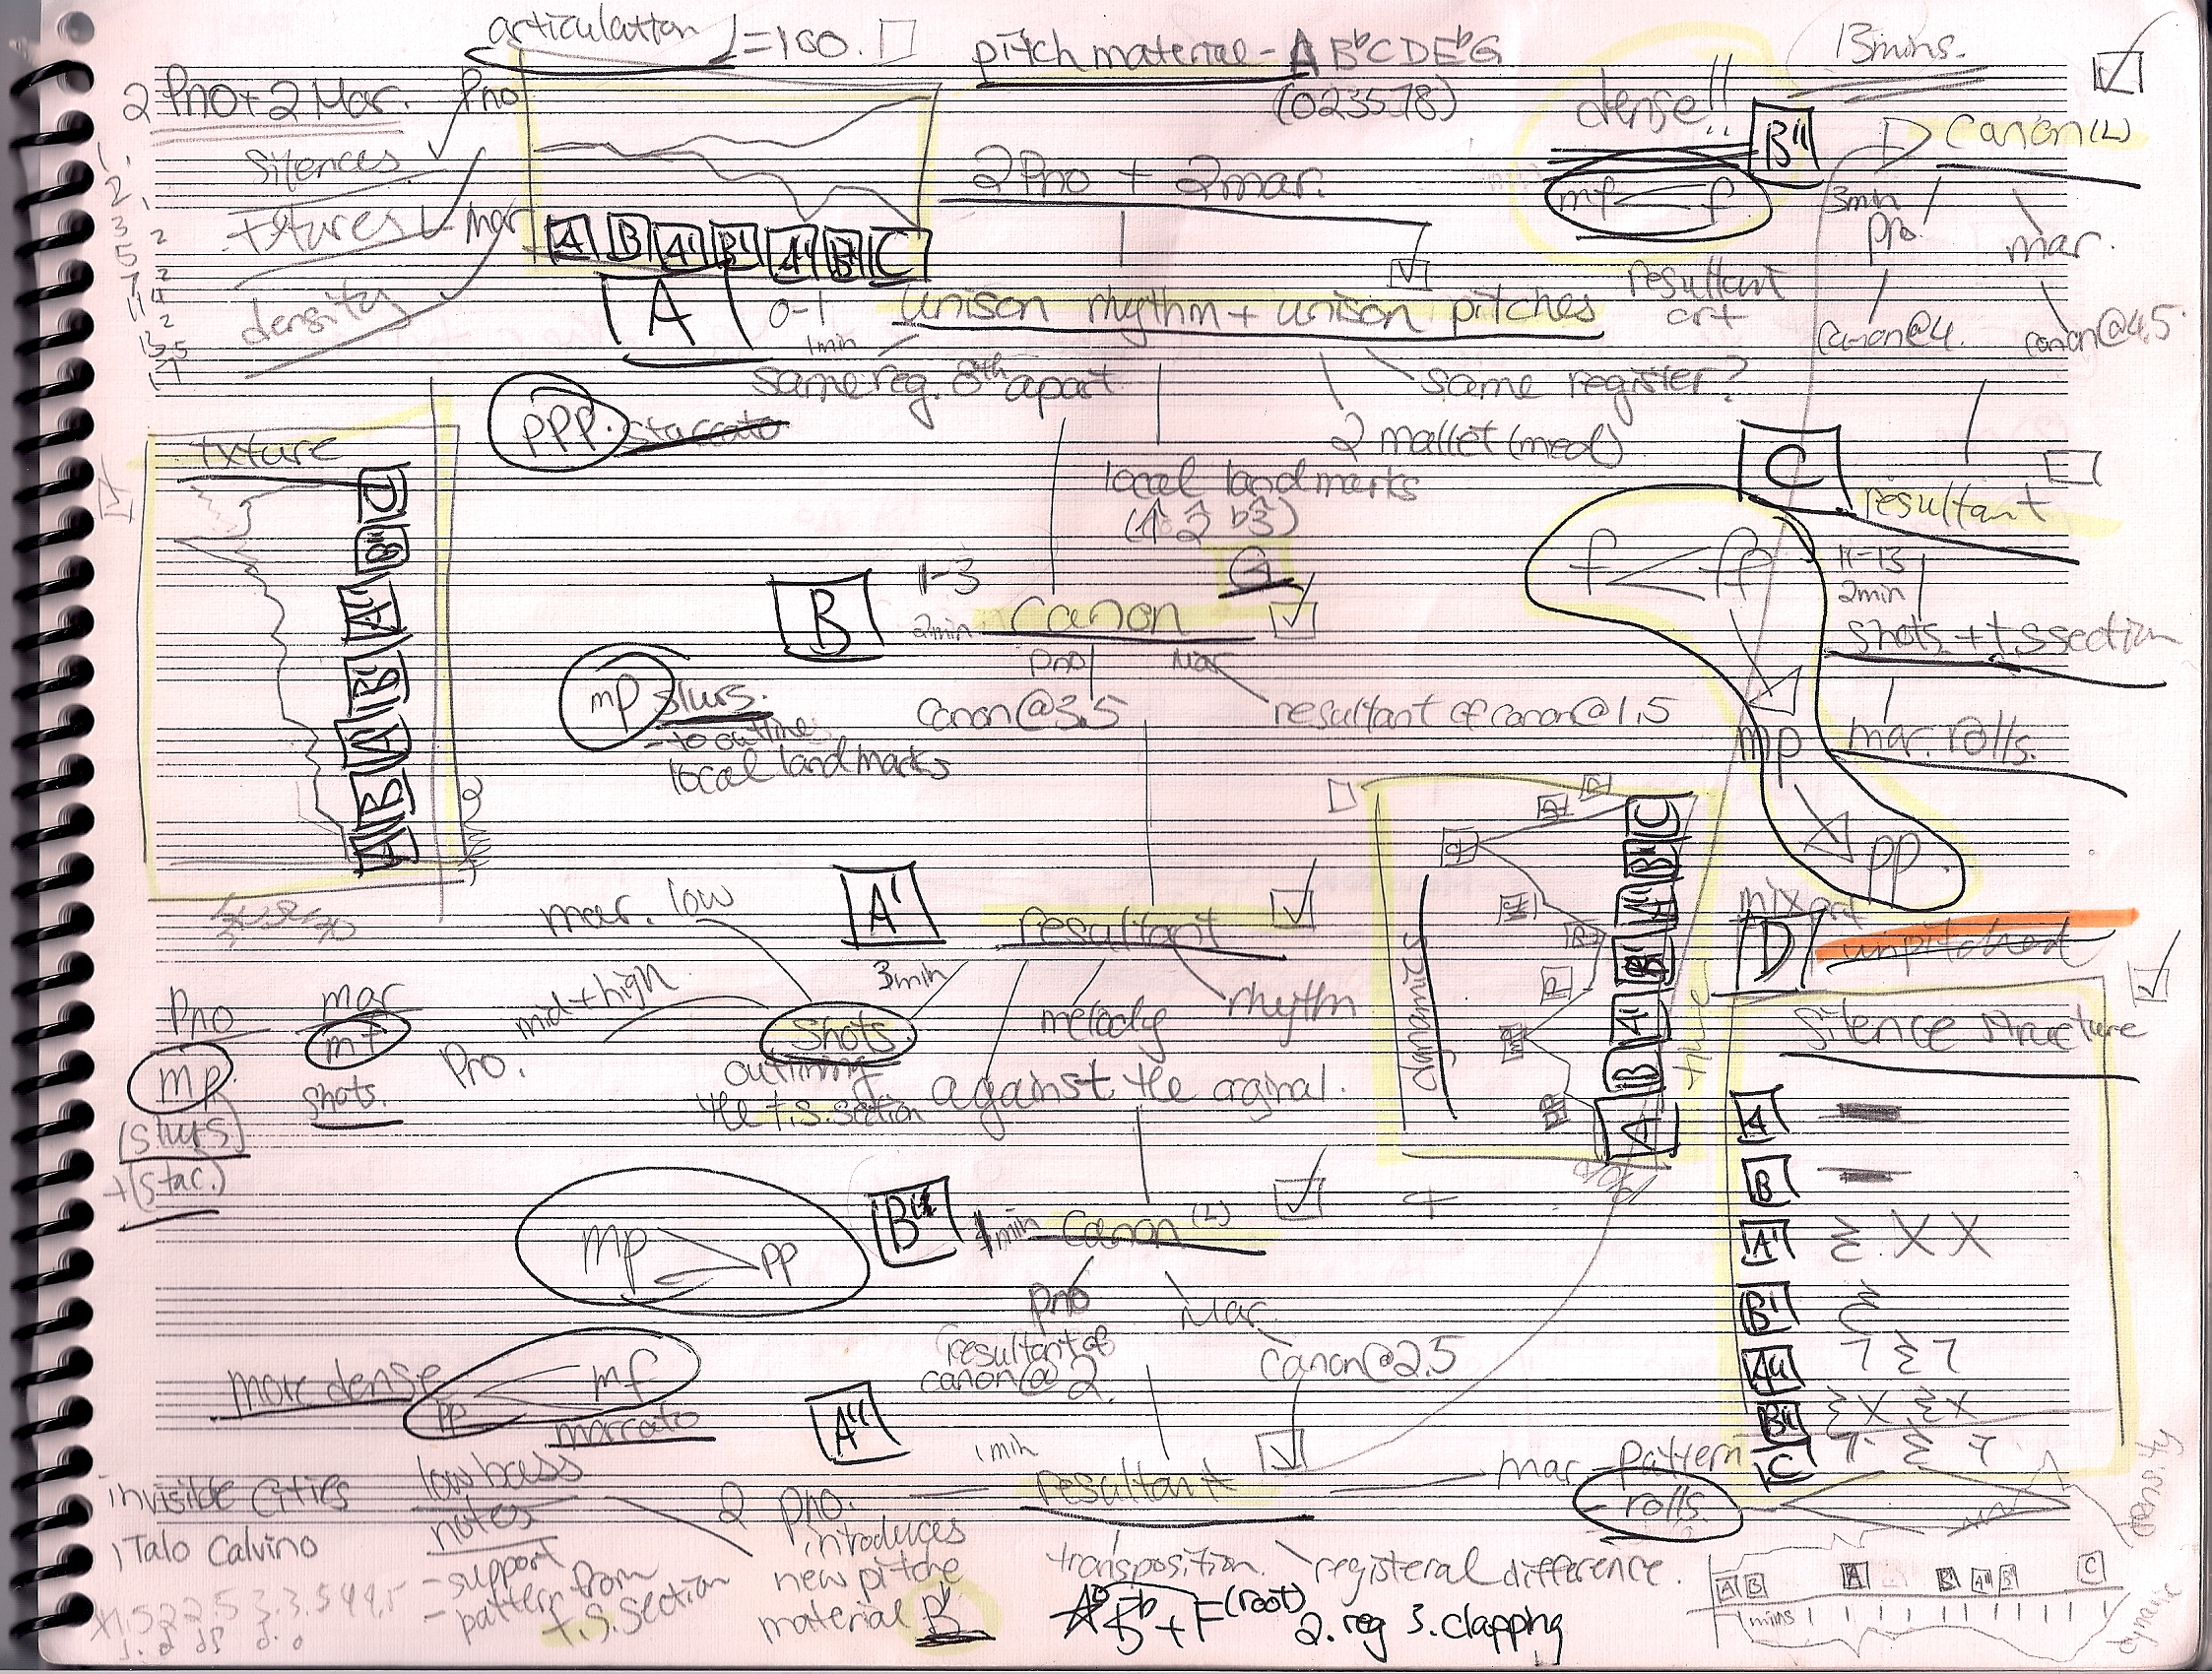 articulation ♩=160.
pitch material - A B♭ C D E♭ G
(023578)
13mins.
2 Pno + 2 Mar.
Pno
Silences
txtures
density
Mar
A B A' B' A'' B'' C
2 Pno + 2 mar.
dense!!
B''
Canon (L)
mp f
3min
pno.
mar.
canon@4.
canon@4.5
resultant
art
A
0-1
1min
unison rhythm + unison pitches
same reg. 8th apart
same register?
ppp.
staccato
2 mallet (med)
local landmarks
(1 2 b3)
G
txture
C B'' A'' B' A' B A
B
1-3
2min
canon
pno
Mar
canon@3.5
resultant of canon@1.5
mp
slurs.
- to outline
local landmarks
C
resultant
f ff
11-13
2min
shots + t.s section
mp
mar. rolls.
pp
mix art
D
unpitched
A'
3min
resultant
mar. low
mid + high
Pno.
Shots
outlining
the t.s. section
melody
rhythm
against the orginal.
Pno
mar
mp
mf
(slurs)
+ (stac.)
shots.
dynamics
C B'' A'' B' A' B A
Silence structure
A
B
A' X X
B'
A''
B'' X X
C
B'
1min
Canon (L)
mp pp
pno
Mar.
resultant of
canon@2.
canon@2.5
more dense
pp mf
marcato
A''
1min
resultant
mar - pattern
- rolls
low bass
notes
- support
- pattern from
t.s. section
2 pno.
introduces
new pitche
material B♭
transposition.
registeral difference.
B♭ + F (root)
2. reg 3. clapping
invisible cities
Italo Calvino
1.5 2 2.5 3 3.5 4 4.5
density
dynamic
A B A' B' A'' B'' C
mins